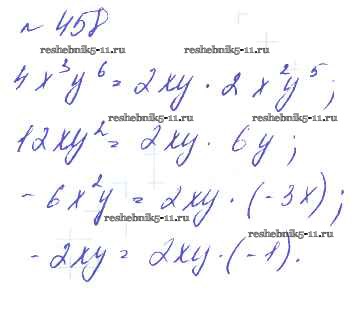 № 458
reshebnik5-11.ru reshebnik5-11.ru
4x³y⁶ = 2xy · 2x²y⁵;
reshebnik5-11.ru
12xy² = 2xy · 6y;
reshebnik5-11.ru
-6x²y = 2xy · (-3x);
reshebnik5-11.ru
reshebnik5-11.ru
-2xy = 2xy · (-1).